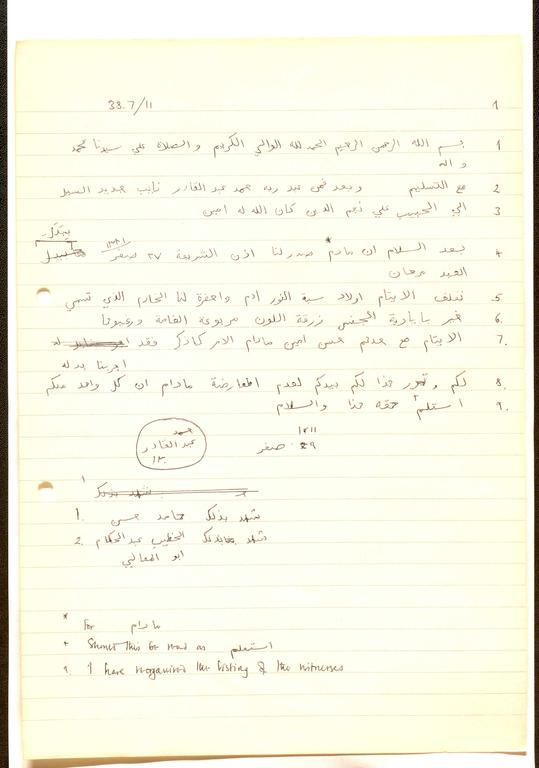 33.7/11
1
1 بسم الله الرحمن الرحيم الحمد لله الوالي الكريم والصلاة علي سيدنا محمد
و اله
2 مع التسليم وبعد فمن عبد ربه محمد عبد القادر نايب جديد السيل
3 الي الحبيب علي نجم الدين كان الله له امين
يبتدل
4 بعد السلام ان مادم* صدر لنا اذن الشريعة ٢٧ صفر
العبد مرجان
5. بتلف الايتام اولاد ستة النور ادم واحضرة لنا الخادم الذي تسمي
6. خير زرقة اللون مربوعة القامة
7. الايتام مع حسن امين مادام الامر كما ذكر فقد له
اجرينا بدله
8. لكم و هذا لكم بيدكم لعدم المعارضة مادام ان كل واحد منكم
9. استلم+ حقه هذا والسلام
١٢١١
٢٩ صفر
محمد
عبد القادر
1
شهد بذلك
1. شهد بذلك حامد حسن
2. شهد بذلك الخطيب عبد الحكام
ابو المعالي
* For مادام
+ Should this be read as استعلم
9. I have reorganised the listing of the witnesses